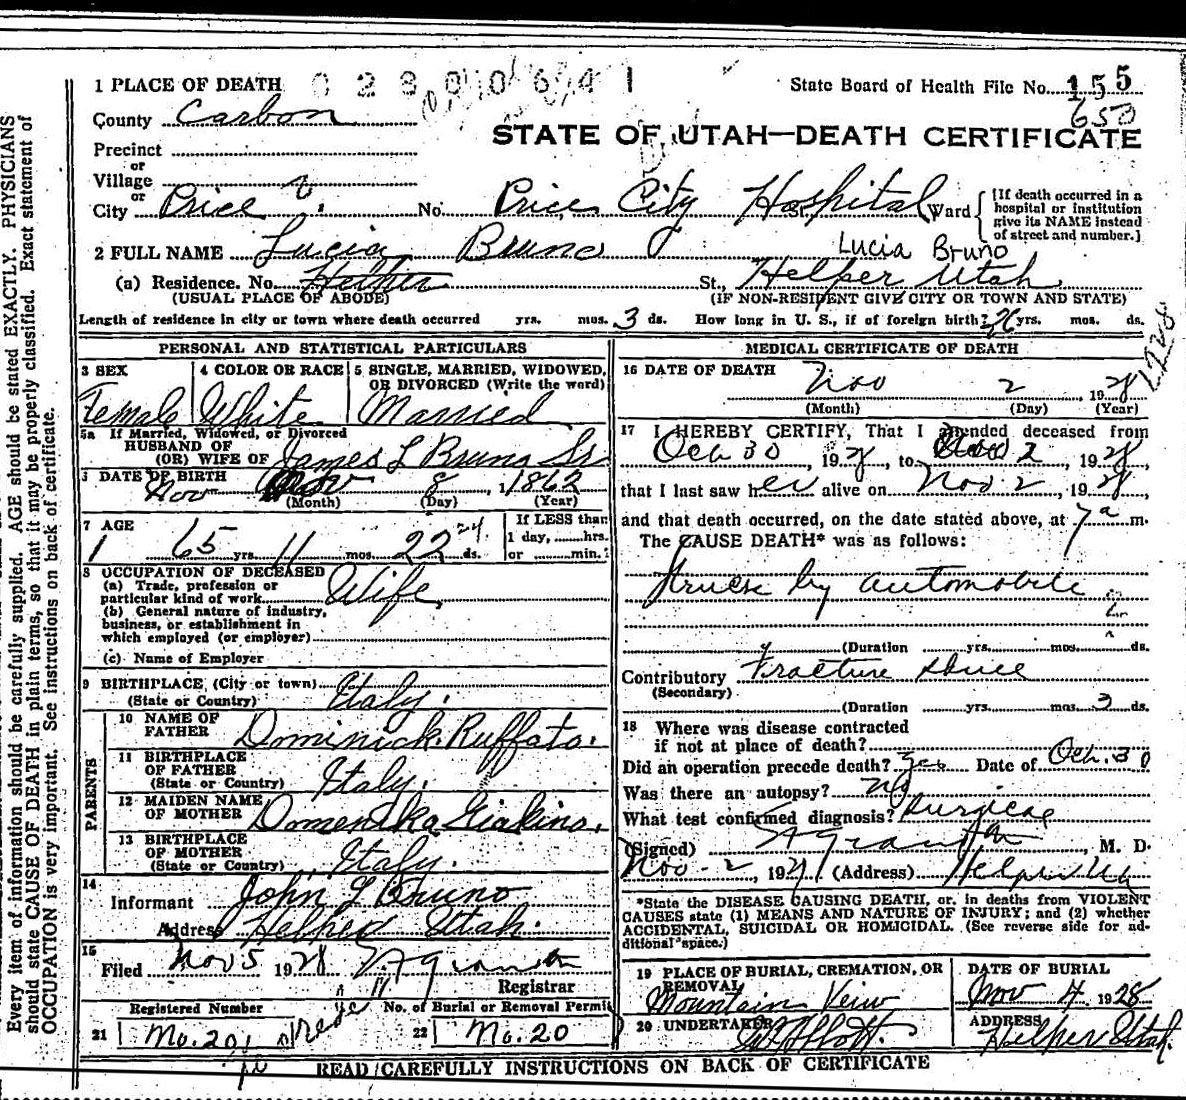 1 PLACE OF DEATH
State Board of Health File No. 155
653
County Carbon
STATE OF UTAH—DEATH CERTIFICATE
Precinct
or
Village
or
City Price No. Price City Hospital St., Ward
[If death occurred in a hospital or institution give its NAME instead of street and number.]
2 FULL NAME Lucia Bruno
Lucia Bruno
(a) Residence. No. Helper St., Helper Utah
(USUAL PLACE OF ABODE) (IF NON-RESIDENT GIVE CITY OR TOWN AND STATE)
Length of residence in city or town where death occurred yrs. mos. 3 ds. How long in U. S., if of foreign birth? 26 yrs. mos. ds.
PERSONAL AND STATISTICAL PARTICULARS
3 SEX Female
4 COLOR OR RACE White
5 SINGLE, MARRIED, WIDOWED, OR DIVORCED (Write the word) Married
5a If Married, Widowed, or Divorced
HUSBAND OF
(OR) WIFE OF James L Bruno Sr
DATE OF BIRTH Nov 8, 1862
(Month) (Day) (Year)
7 AGE 65 yrs. 11 mos. 22 24 ds.
If LESS than 1 day, hrs. or min.?
8 OCCUPATION OF DECEASED
(a) Trade, profession or particular kind of work Wife
(b) General nature of industry, business, or establishment in which employed (or employer)
(c) Name of Employer
9 BIRTHPLACE (City or town)
(State or Country) Italy.
PARENTS
10 NAME OF FATHER Dominick Ruffato.
11 BIRTHPLACE OF FATHER (State or Country) Italy.
12 MAIDEN NAME OF MOTHER
13 BIRTHPLACE OF MOTHER (State or Country) Italy.
14 Informant John L Bruno
Address Helper Utah.
15 Filed Nov 5 1928
Registrar
Registered Number
No. of Burial or Removal Permit
21 No. 20
22 No. 20
MEDICAL CERTIFICATE OF DEATH
16 DATE OF DEATH Nov 2, 1928
(Month) (Day) (Year)
17 I HEREBY CERTIFY, That I attended deceased from
Oct 30, 1928, to Nov 2, 1928,
that I last saw her alive on Nov 2, 1928,
and that death occurred, on the date stated above, at 7 a m.
The CAUSE DEATH* was as follows:
Struck by automobile
(Duration yrs. mos. ds.
Contributory Fracture
(Secondary)
(Duration yrs. mos. 3 ds.
18 Where was disease contracted
if not at place of death?
Did an operation precede death? Yes Date of Oct. 30
Was there an autopsy? No
What test confirmed diagnosis? Surgical
(Signed) , M. D.
Nov. 2, 192 (Address) Helper Utah
*State the DISEASE CAUSING DEATH, or, in deaths from VIOLENT
CAUSES state (1) MEANS AND NATURE OF INJURY; and (2) whether
ACCIDENTAL, SUICIDAL OR HOMICIDAL. (See reverse side for ad-
ditional space.)
19 PLACE OF BURIAL, CREMATION, OR REMOVAL Mountain Veiw
DATE OF BURIAL Nov 4 1928
20 UNDERTAKER
ADDRESS Helper Utah.
READ CAREFULLY INSTRUCTIONS ON BACK OF CERTIFICATE
Every item of information should be carefully supplied. AGE should be stated EXACTLY. PHYSICIANS
should state CAUSE OF DEATH in plain terms, so that it may be properly classified. Exact statement of
OCCUPATION is very important. See instructions on back of certificate.